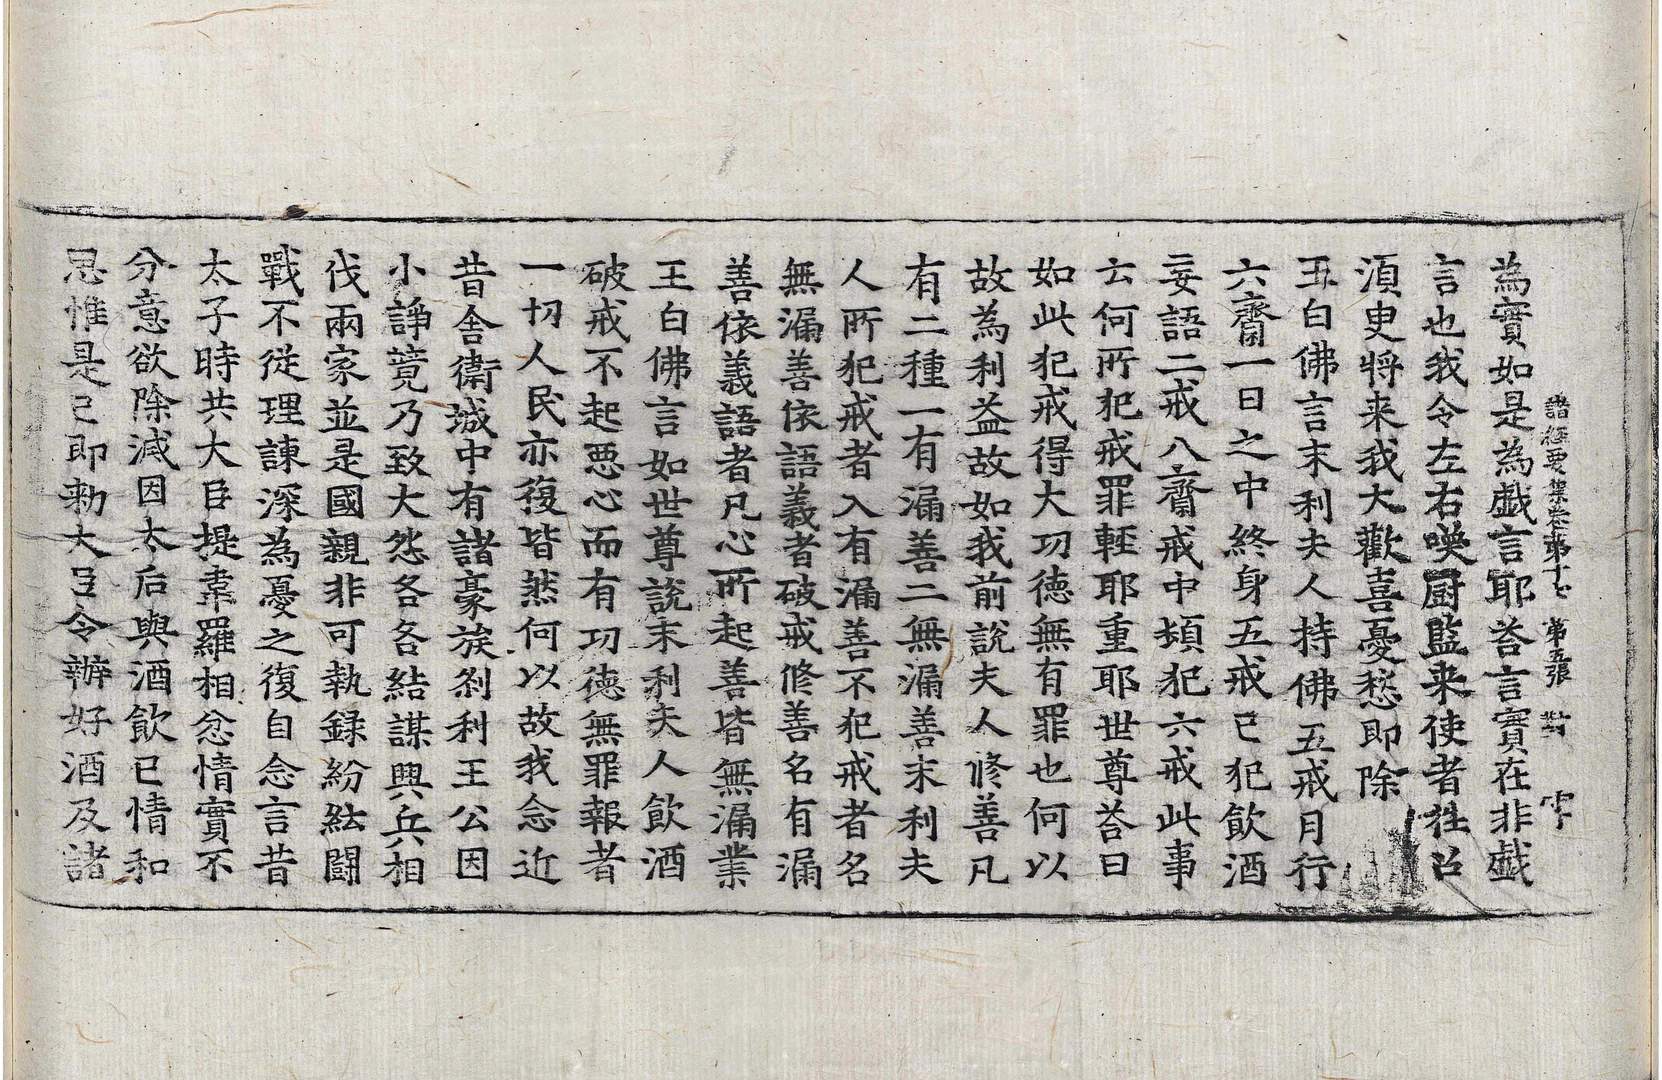 諸經要集卷第十七 第五張 對字
為實如是為戯言耶荅言實在非戯
言也我令左右喚厨監来使者往召
湏臾將来我大歡喜憂愁即除
王白佛言末利夫人持佛五戒月行
六齋一日之中終身五戒已犯飲酒
妄語二戒八齋戒中頻犯六戒此事
云何所犯戒罪輕耶重耶世尊荅曰
如此犯戒得大功德無有罪也何以
故為利益故如我前說夫人修善凡
有二種一有漏善二無漏善末利夫
人所犯戒者入有漏善不犯戒者名
無漏善依語義者破戒修善名有漏
善依義語者凡心所起善皆無漏業
王白佛言如世尊說末利夫人飲酒
破戒不起惡心而有功徳無罪報者
一切人民亦復皆然何以故我念近
昔舍衛城中有諸豪族刹利王公因
小諍竟乃致大怨各各結謀興兵相
伐兩家並是國親非可執録紛紜鬪
戰不從理諫深為憂之復自念言昔
太子時共大臣提韋羅相忿情實不
分意欲除滅因太后與酒飲已情和
思惟是已即勑大臣令辦好酒及諸